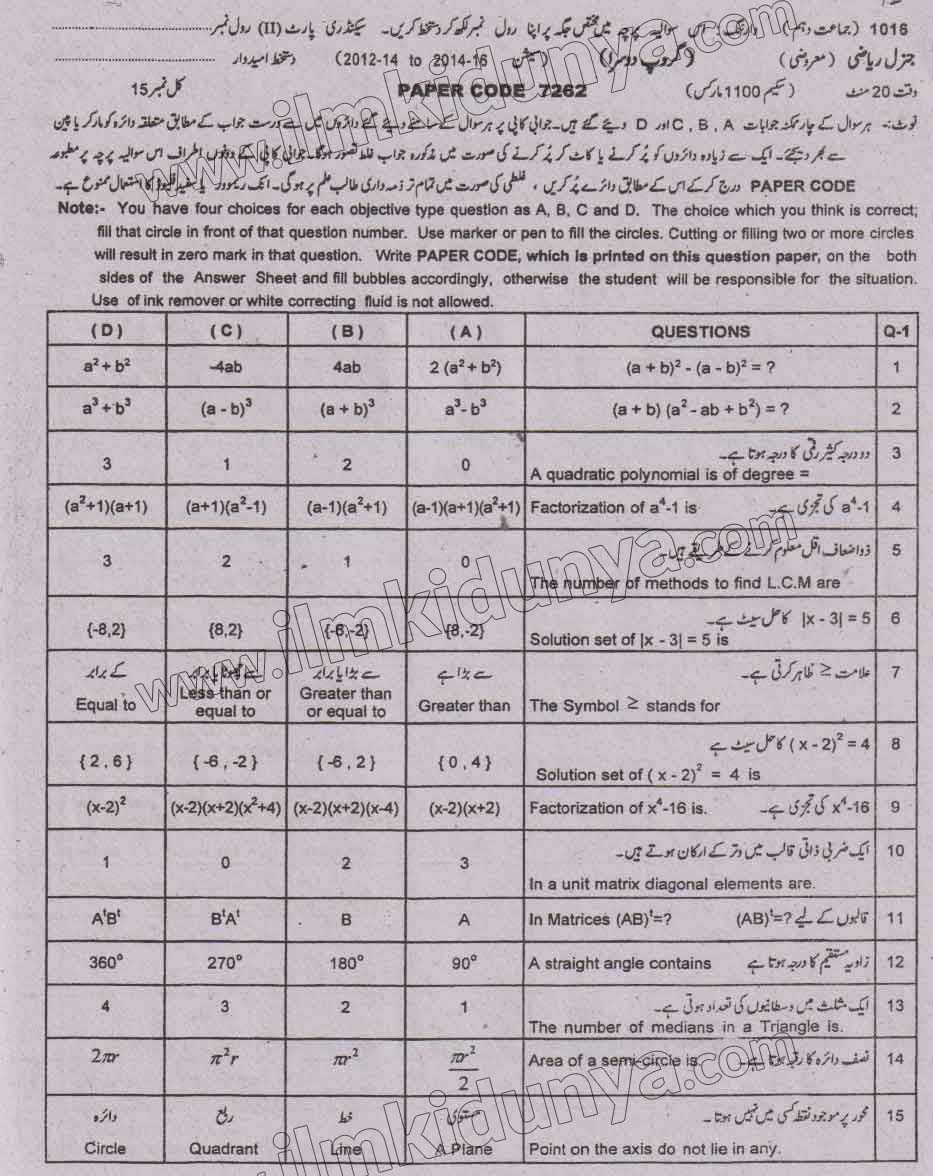 1016 (جماعت دہم) وارننگ:۔ اس سوالیہ پرچہ میں مختص جگہ پر اپنا رول نمبر لکھ کر دستخط کریں۔ سیکنڈری پارٹ (II) رول نمبر
جنرل ریاضی (معروضی) (گروپ دوسرا) (سیشن 2012-14 to 2014-16) دستخط امیدوار
وقت 20 منٹ (سکیم 1100 مارکس) PAPER CODE 7262 کل نمبر 15
نوٹ:۔ ہر سوال کے چار ممکنہ جوابات A ، B ، C اور D دیئے گئے ہیں۔ جوابی کاپی پر ہر سوال کے سامنے دیئے گئے دائروں میں سے درست جواب کے مطابق متعلقہ دائرہ کو مارکر یا پین
سے بھر دیجئے۔ ایک سے زیادہ دائروں کو پُر کرنے یا کاٹ کر پُر کرنے کی صورت میں مذکورہ جواب غلط تصور ہوگا۔ جوابی کاپی کے دونوں اطراف اس سوالیہ پرچہ پر مطبوعہ
PAPER CODE درج کرکے اس کے مطابق دائرے پُر کریں ، غلطی کی صورت میں تمام تر ذمہ داری طالب علم پر ہوگی۔ انک ریموور یا سفید فلیوڈ کا استعمال ممنوع ہے۔
Note:- You have four choices for each objective type question as A, B, C and D. The choice which you think is correct;
fill that circle in front of that question number. Use marker or pen to fill the circles. Cutting or filling two or more circles
will result in zero mark in that question. Write PAPER CODE, which is printed on this question paper, on the both
sides of the Answer Sheet and fill bubbles accordingly, otherwise the student will be responsible for the situation.
Use of ink remover or white correcting fluid is not allowed.
(D) (C) (B) (A) QUESTIONS Q-1
a² + b² -4ab 4ab 2 (a² + b²) (a + b)² - (a - b)² = ? 1
a³ + b³ (a - b)³ (a + b)³ a³- b³ (a + b) (a² - ab + b²) = ? 2
دو درجہ کثیر رقمی کا درجہ ہوتا ہے۔ 3
3 1 2 0 A quadratic polynomial is of degree =
(a²+1)(a+1) (a+1)(a²-1) (a-1)(a²+1) (a-1)(a+1)(a²+1) Factorization of a⁴-1 is a⁴-1 کی تجزی ہے۔ 4
ذواضعاف اقل معلوم کرنے کے طریقے ہیں۔ 5
3 2 1 0 The number of methods to find L.C.M are
|x - 3| = 5 کا حل سیٹ ہے۔ 6
{-8,2} {8,2} {-6,-2} {8,-2} Solution set of |x - 3| = 5 is
کے برابر سے چھوٹا یا برابر سے بڑا یا برابر سے بڑا ہے علامت ≥ ظاہر کرتی ہے۔ 7
Equal to Less than or equal to Greater than or equal to Greater than The Symbol ≥ stands for
(x - 2)² = 4 کا حل سیٹ ہے 8
{ 2 , 6 } { -6 , -2 } { -6 , 2 } { 0 , 4 } Solution set of ( x - 2)² = 4 is
(x-2)² (x-2)(x+2)(x²+4) (x-2)(x+2)(x-4) (x-2)(x+2) Factorization of x⁴-16 is. x⁴-16 کی تجزی ہے۔ 9
ایک ضربی ذاتی قالب میں وتر کے ارکان ہوتے ہیں۔ 10
1 0 2 3 In a unit matrix diagonal elements are.
AᵗBᵗ BᵗAᵗ B A In Matrices (AB)ᵗ=? قالبوں کے لیے (AB)ᵗ=? 11
360° 270° 180° 90° A straight angle contains زاویہ مستقیم کا درجہ ہوتا ہے 12
ایک مثلث میں وسطانیوں کی تعداد ہوتی ہے۔ 13
4 3 2 1 The number of medians in a Triangle is.
2πr π²r πr² πr²/2 Area of a semi-circle is. نصف دائرہ کا رقبہ ہوتا ہے۔ 14
دائرہ ربع خط مستوی محور پر موجود نقطہ کسی میں نہیں ہوتا۔ 15
Circle Quadrant Line A Plane Point on the axis do not lie in any.
www.ilmkidunya.com
www.ilmkidunya.com
www.ilmkidunya.com